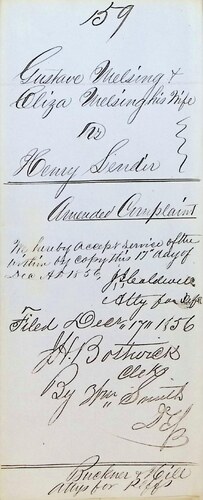 159
Gustave Meising &
Eliza Meising his Wife
vs
Henry Sender
Amended Complaint
We hereby accept service of the
within by copy this 17th day of
Dec A.D. 1856
J Caldwell
Atty for Deft
Filed Decr 17th 1856
J.H. Bostwick
Clerk
By Wm Smith
D
Buckner & Hill
Attys for Plffs